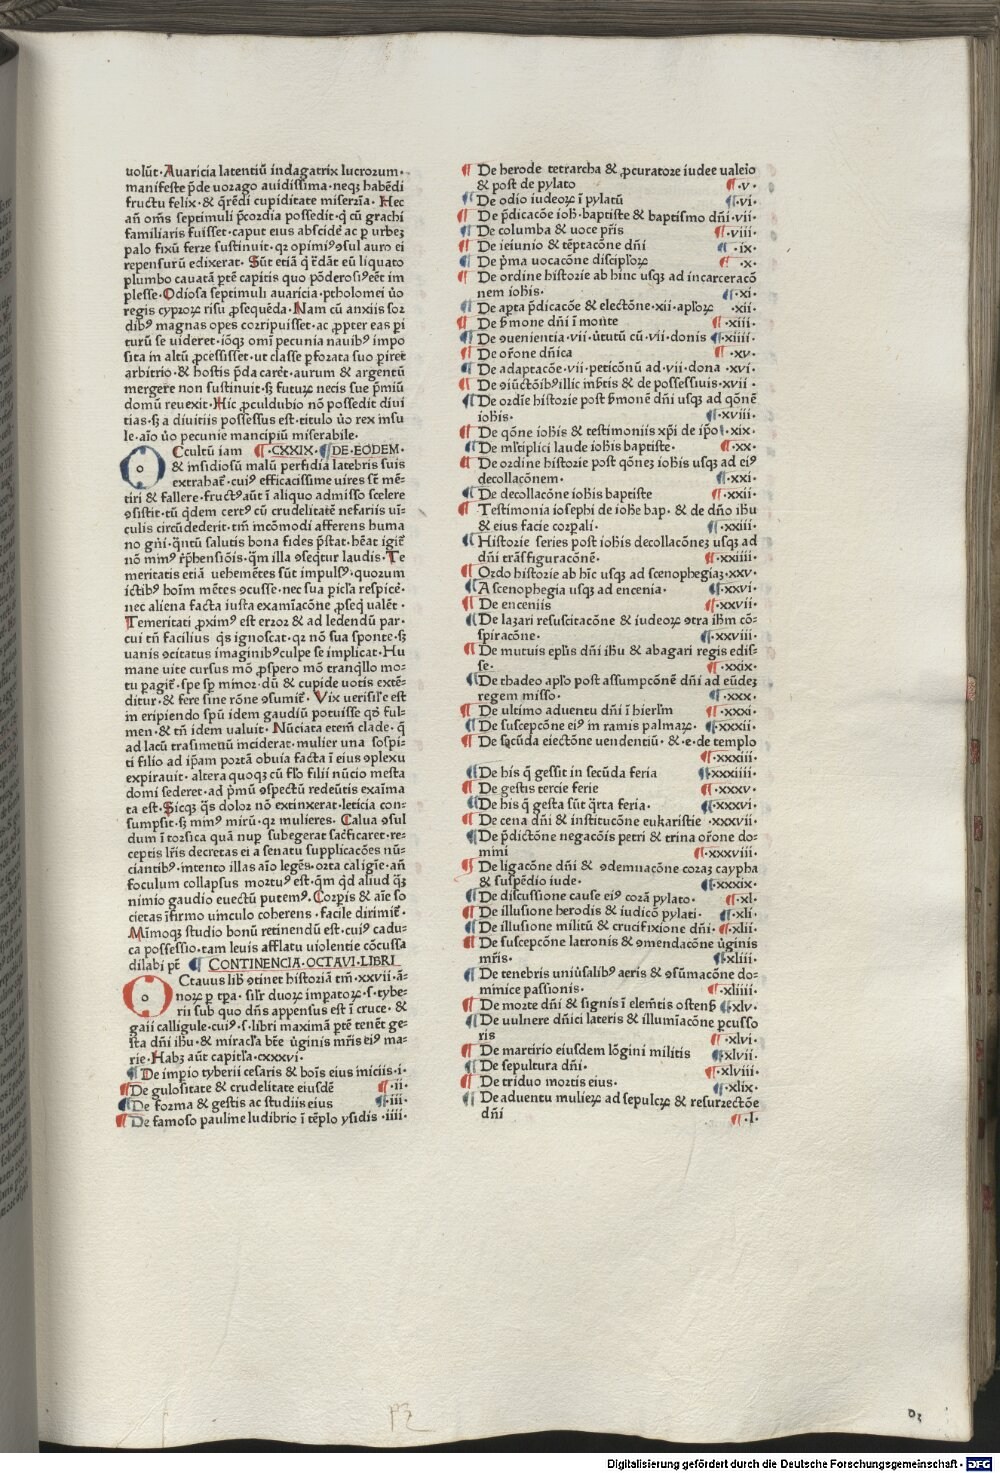 uolūt·Auaricia latentiū indagatrix lucrorum·
manifeste p̄de uorago auidissima·neqꝫ habēdi
fructu felix·& q̄rēdi cupiditate miserꝛīa·Hec
añ om̄s septimuli p̄cordia possedit·q̇ cū grachi
familiaris fuisset·caput eius abscidē ac ꝑ urbeꝫ
palo fixū ferꝛe sustinuit·qꝛ opimiꝰ ꝯsul auro ei
repensurū edixerat·Sūt etiā q̇ t̄dāt eū liquato
plumbo cauatā ꝑtē capitis quo pōderosiꝰ eēt im
plesse·Odiosa septimuli auaricia·ptholomei ūo
regis cyproꝝ risu ꝓsequēda·Nam cū anxiis soꝛ
dibꝰ magnas opes coꝛripuisset·ac ꝓpter eas ꝑi
turū se uideret·iōqꝫ om̄i pecunia nauibꝰ impo
sita in altū ꝓcessisset·ut classe ꝑforata suo ꝑiret
arbitrio·& hostis p̄da carēt·aurum & argentū
mergere non sustinuit·sꝫ futuꝝ necis sue p̄miū
domū reuexit·Hic ꝓculdubio nō possedit diui
tias·sꝫ a diuitiis possessus est·titulo ūo rex insu
le·aīo ūo pecunie mancipiū miserabile·
OCcultū iam ¶·CXXIX·¶DE·EODEM·
& insidiosū malū perfidia latebris suis
extrahat̄·cuiꝰ efficacissime uires sēt mē-
tiri & fallere·fructꝰ aūt ī aliquo admisso scelere
ꝯsistit·tū q̇dem certꝰ cū crudelitatē nefariis uī-
culis circūdederit·tm̄ incōmodi afferens huma
no gñi·q̄ntū salutis bona fides p̄stat·hēat igit̄
nō mīnꝰ r̄p̄hensiōis·q̄m illa ꝯseqtur laudis·Te
meritatis etiā uehemētes sūt impulsꝰ·quorum
ictibꝰ hoīm mētes ꝯcusse·nec sua picl̄a respicē·
nec aliena facta iusta examīacōne ꝓseq̇ ualēt·
Temeritati ꝓximꝰ est erꝛoꝛ & ad ledendū par·
cui tñ facilius q̇s ignoscat·qꝛ nō sua sponte·sꝫ
uanis ꝯcitatus imaginibꝰ culpe se implicat·Hu
mane uite cursus mō ꝓspero mō tranq̇llo mo-
tu pagit̄·spe sp̄ minoꝛ·dū & cupide uotis extē-
ditur·& fere sine rōne ꝯsumit̄·Vix uerisil̄e est
in eripiendo spū idem gaudiū potuisse qd̄ ful-
men·& tñ idem ualuit·Nūciata etem̄ clade·q̄
ad lacū trasimenū inciderat·mulier una sospi-
ti filio ad ip̄am poꝛtā obuia facta ī eius ꝯplexu
expirauit·altera quoqꝫ cū fl̄o filii nūcio mesta
domi sederet·ad p̄mū ꝯspectū redeūtis exaīma
ta est·Sicqꝫ q̇s doloꝛ nō extinxerat·leticia con-
sumpsit·sꝫ mīnꝰ mirū·qꝛ mulieres·Calua ꝯsul
dum ī torsica quā nup̄ subegerat sac̄ficaret·re-
ceptis lr̄is decretas ei a senatu supplicacōes nū-
ciantibꝰ·intento illas aīo legēs·oꝛta caligīe·añ
foculum collapsus moꝛtuꝰ est·q̄m q̇d aliud q̄ꝫ
nimio gaudio euectū putemꝰ·Coꝛpis & aīe so
cietas īfirmo uinculo coherens·facile dirimit̄·
Mīmoqꝫ studio bonū retinendū est·cuiꝰ cadu-
ca possessio·tam leuis afflatu uiolentie cōcussa
dilabi pt̄ ¶CONTINENCIA·OCTAVI·LIBRI
OCtauus lib̄ ꝯtinet historiā tm̄·xxvii·ā-
noꝝ ꝑ tpa·sil̄r duoꝝ impatoꝝ·s·tybe-
rii sub quo dn̄s appensus est ī cruce·&
gaii calligule·cuiꝰ·s·libri maximā ꝑtē tenēt ge-
sta dñi ihū & miracl̄a bt̄e ūginis mr̄is eiꝰ ma-
rie·Habꝫ aūt capitl̄a·cxxxvi·
¶De imꝑio tyberii cesaris & boīs eius iniciis·i·
¶De gulositate & crudelitate eiusdē ¶·ii·
¶De forma & gestis ac studiis eius ¶·iii·
¶De famoso pauline ludibrio ī tēplo ysidis·iiii·
¶De herode tetrarcha & ꝓcuratoꝛe iudee ualeio
& post de pylato ¶·v·
¶De odio iudeoꝝ ī pylatū ¶·vi·
¶De p̄dicacōe ioħ·baptiste & baptismo dñi·vii·
¶De columba & uoce pr̄is ¶·viii·
¶De ieiunio & tēptacōne dñi ¶·ix·
¶De p̄ma uocacōne discipl̄oꝝ ¶·x·
¶De ordine histoꝛie ab hinc usqꝫ ad incarceracō
nem ioħis· ¶·xi·
¶De apta p̄dicacōe & electōne·xii·apl̄oꝝ ·xii·
¶De ẜmone dñi ī monte ¶·xiii·
¶De ꝯuenientia·vii·ūtutū cū·vii·donis ¶·xiiii·
¶De oꝛ̄one dñica ¶·xv·
¶De adaptacōe·vii·peticōnū ad·vii·dona·xvi·
¶De ꝯiūctōibꝰ illic īnb̄tis & de possessiuis·xvii·
¶De oꝛdīe histoꝛie post ẜmonē dñi usqꝫ ad qōnē
ioħis· ¶·xviii·
¶De qōne ioħis & testimoniis xp̄i de ip̄o·xix·
¶De ml̄tiplici laude ioħis baptiste· ¶·xx·
¶De oꝛdine histoꝛie post qōneꝫ ioħis usqꝫ ad eiꝰ
decollacōnem· ¶·xxi·
¶De decollacōne ioħis baptiste ¶·xxii·
¶Testimonia iosephi de ioħe bap·& de dño ihū
& eius facie coꝛpali· ¶·xxiii·
¶Histoꝛie series post ioħis decollacōneꝫ usqꝫ ad
dñi trāsfiguracōnē· ¶·xxiiii·
¶Oꝛdo histoꝛie ab hīc usqꝫ ad scenophegiaꝫ·xxv·
¶A scenophegia usqꝫ ad encenia· ¶·xxvi·
¶De enceniis ¶·xxvii·
¶De lazari resuscitacōne & iudeoꝝ ꝯtra ihm̄ cō-
spiracōne· ¶·xxviii·
¶De mutuis epl̄is dñi ihū & abagari regis edis-
se· ¶·xxix·
¶De thadeo apl̄o post assumpcōnē dñi ad eūdeꝫ
regem misso· ¶·xxx·
¶De ultimo aduentu dñi ī hierl̄m ¶·xxxi·
¶De suscepcōne eiꝰ in ramis palmaꝝ· ¶·xxxii·
¶De sq̄cūda eiectōne uendentiū·&·e·de templo
¶·xxxiii·
¶De his q̄ gessit in secūda feria ¶·xxxiiii·
¶De gestis tercie ferie ¶·xxxv·
¶De his q̄ gesta sūt q̄rta feria· ¶·xxxvi·
¶De cena dñi & institucōne eukaristie ·xxxvii·
¶De p̄dictōne negacōis petri & trina oꝛ̄one do-
mini ¶·xxxviii·
¶De ligacōne dñi & ꝯdemnacōne coꝛaꝫ caypha
& suspēdio iude· ¶·xxxix·
¶De discussione cause eiꝰ coꝛā pylato· ¶·xl·
¶De illusione herodis & iudicō pylati· ¶·xli·
¶De illusione militū & crucifixione dñi·¶·xlii·
¶De suscepcōne latronis & ꝯmendacōne ūginis
mr̄is· ¶·xliii·
¶De tenebris uniūsalibꝰ aeris & ꝯsūmacōne do-
minice passionis· ¶·xliiii·
¶De moꝛte dñi & signis ī elem̄tis ostenẜ ¶·xlv·
¶De uulnere dñici lateris & illumīacōne ꝑcusso
ris ¶·xlvi·
¶De martirio eiusdem lōgini militis ¶·xlvii·
¶De sepultura dñi· ¶·xlviii·
¶De triduo moꝛtis eius· ¶·xlix·
¶De aduentu mulieꝝ ad sepulcꝝ & resurꝛectōe
dñi ¶·l·
Digitalisierung gefördert durch die Deutsche Forschungsgemeinschaft - DFG